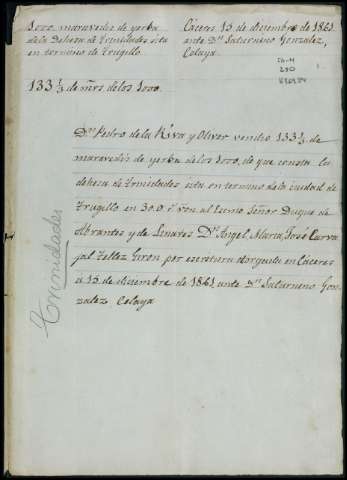 3000 maravedis de yerba
de la Dehesa de Trinidades sita
en termino de Trugillo.
133 1/3 de mrs de los 3000.
Cáceres 15 de diciembre de 1861
ante Dn Saturnino Gonzalez,
Celaya.
Dn Pedro de la Riva y Oliver vendio 133 1/3 de
maravedis de yerba de los 3000, de que consta la
dehesa de Trinidades sita en termino de la ciudad de
Trugillo en 30.0 von al Exmo Señor Duque de
Abrantes y de Linares Dn Angel, Maria, José Carva
jal Tellez Giron por escritura otorgada en Cáceres
a 15 de diciembre de 1861 ante Dn Saturnino Gon-
zalez Celaya
Trinidades